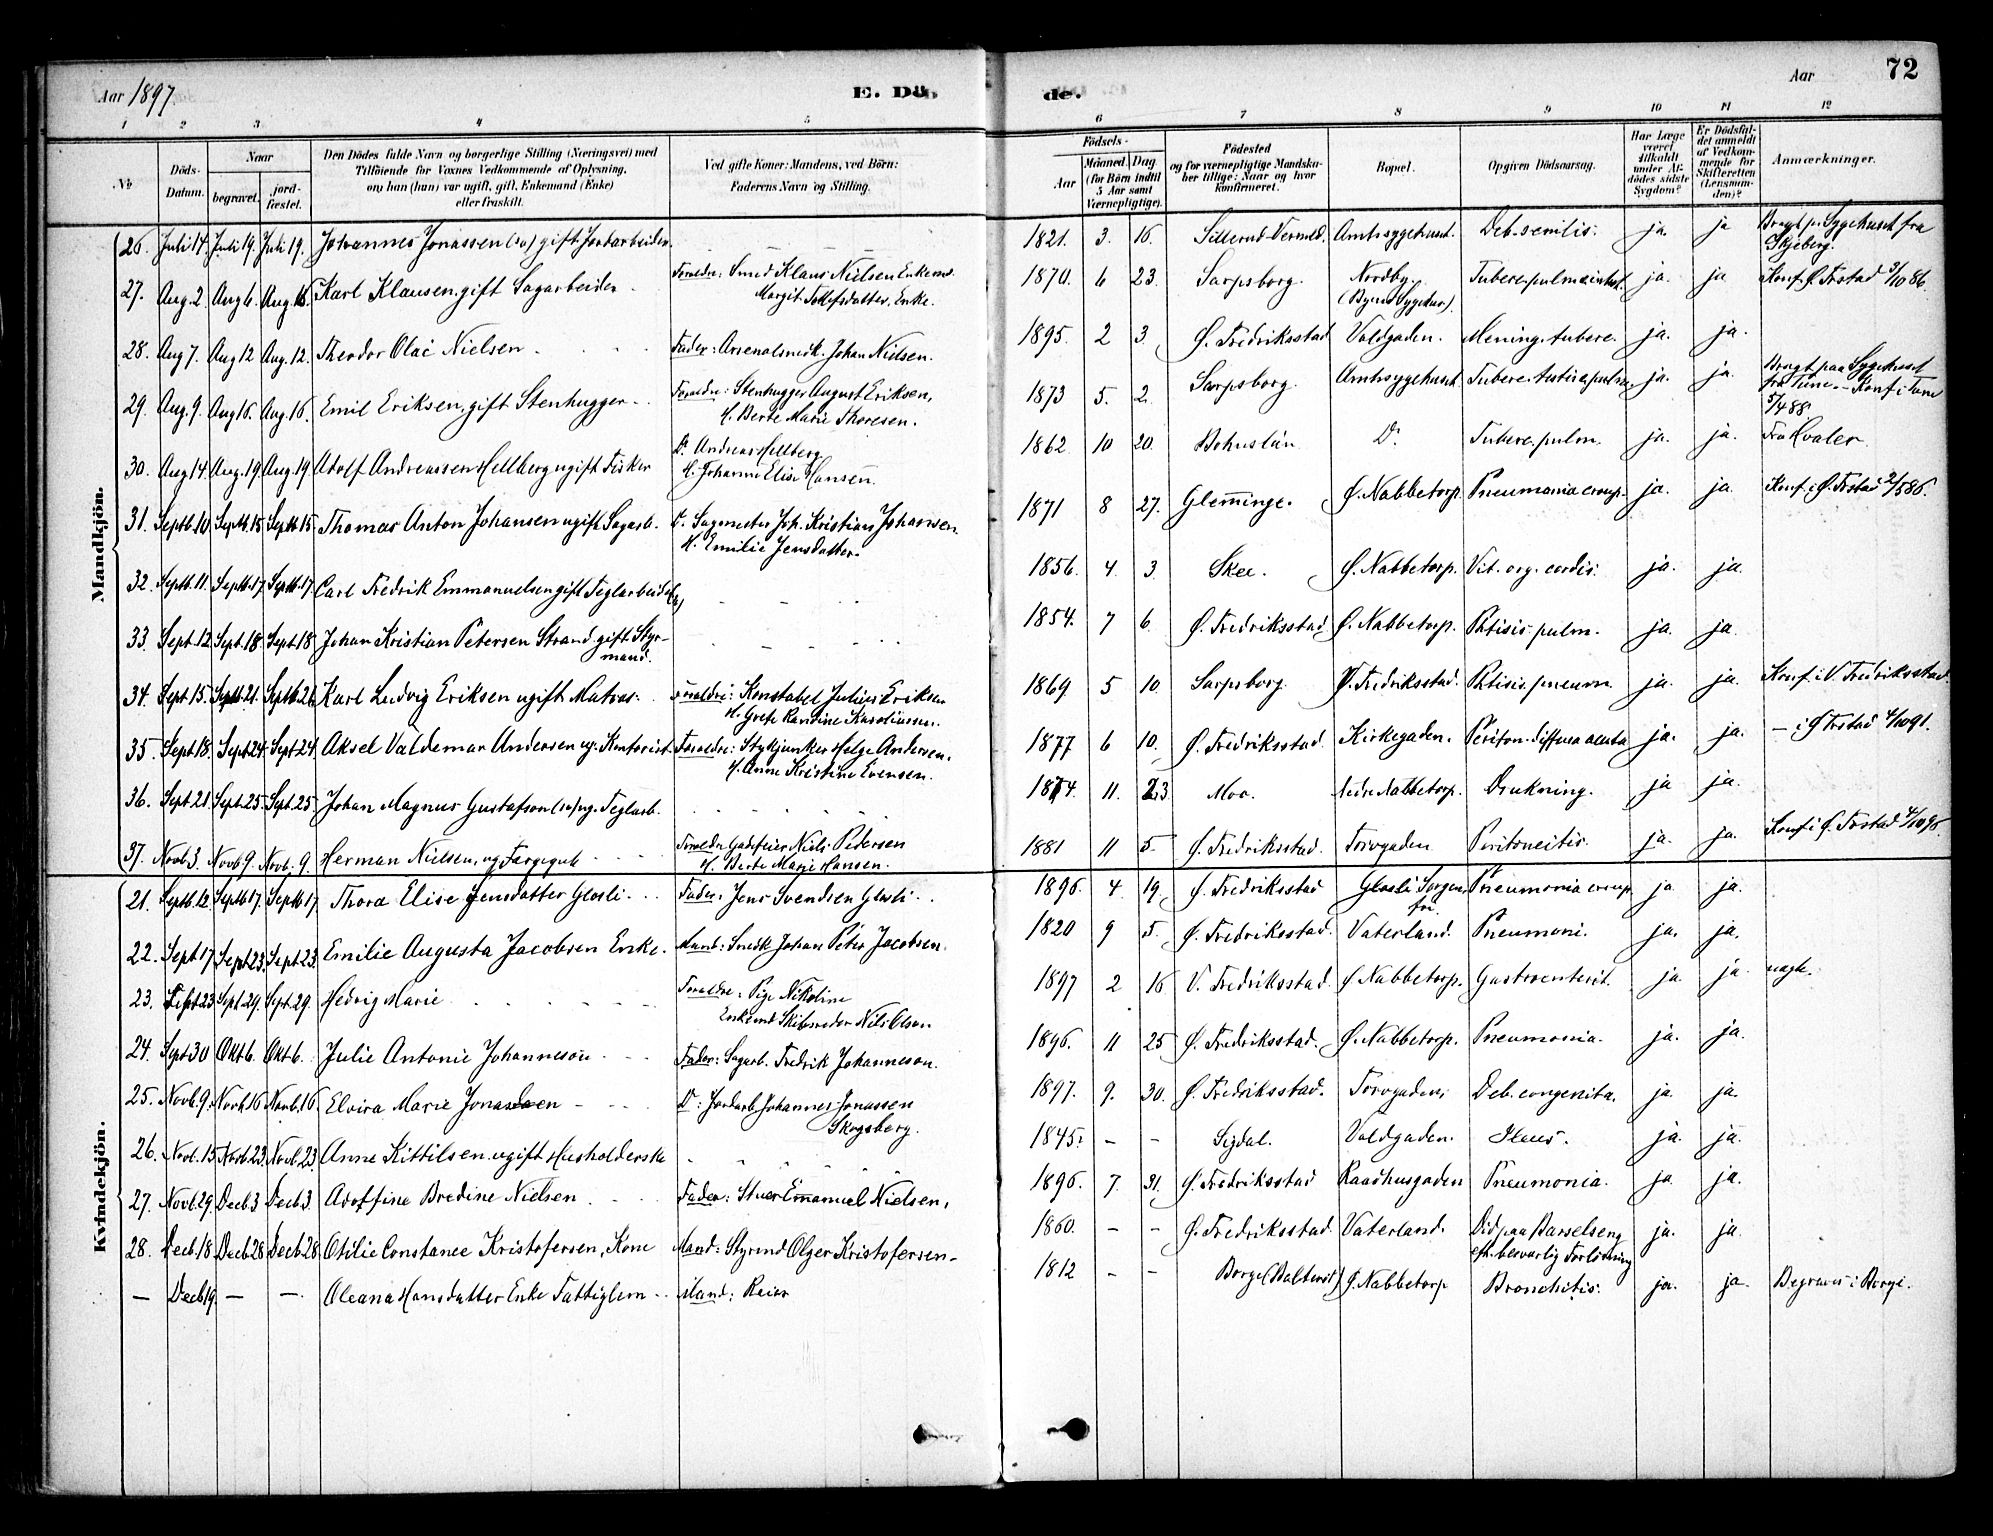 Aar 1897
E. Dö
de.
Aar
72
1 2 3 4 5 6 7 8 9 10 11 12
No
Döds-Datum.
Naar
begravet.
jord-fæstet.
Den Dödes fulde Navn og borgerlige Stilling (Næringsvei) med
Tilföiende for Voxnes Vedkommende af Oplysning,
om han (hun) var ugift, gift, Enkemand (Enke)
eller fraskilt.
Ved gifte Koner: Mandens, ved Börn:
Faderens Navn og Stilling.
Födsels-
Aar
Maaned. Dag
(for Börn indtil
5 Aar samt
Værnepligtige).
Födested
og for værnepligtige Mandska-
ber tillige: Naar og hvor
konfirmeret.
Bopæl.
Opgiven Dödsaarsag.
Har Læge
været
tilkaldt
under Af-
dödes sidste
Sygdom?
Er Dödsfal-
det anmeldt
af Vedkom-
mende for
Skifteretten
(Lensman-
den)?
Anmærkninger.
Mandkjön.
26. Juli 14. Juli 19. Juli 19. Johannes Jonassen (sv) gift Jordarbeider. 1821. 3. 16. Sillerud Vermld. Amtssygehuset. Deb. senilis. ja. ja Bragt p. Sygehuset fra
Skjeberg.
27. Aug. 2. Aug 6. Aug. 16. Karl Klausen, gift Sagarbeider Forældre: Smed Klaus Nielsen Enkemd. 1870. 6 23. Sarpsborg. Nordby. ja. ja Konf. Ø. Frstad 3/10 86.
Margit Tollefsdatter, Enke. (Byens Sygehus).
28. Aug 7. Aug 12 Aug. 12. Theodor Olai Nielsen Fader: Arsenalsmedk. Johan Nielsen. 1895. 2 3. Ø. Fredriksstad Voldgaden. Mening. tuberc. ja. ja.
29. Aug. 9. Aug 16. Aug. 16. Emil Eriksen, gift Stenhugger Forældre: Stenhugger August Eriksen, 1873 5. 2. Sarpsborg. Amtssygehuset ja. ja. Bragt paa Sygehuset
H. Berte Marie Thoresen. fra Tune. - Konf. i Tune
5/4 88.
30. Aug 14 Aug. 19 Aug. 19 Adolf Andreassen Hellberg ugift Fisker D. Andreas Hellberg 1862 10 20. Bohuslän Do. Tuberc. pulm. ja. ja. Fra Hvaler.
H. Johanne Elise Hansen.
31. Septb. 10 Septb. 15 Septb. 15. Thomas Anton Johansen ugift Sagarb. F. Sagmester Joh. Kristian Johansen 1871 8 27. Glemminge. Ø. Nabbetorp. Pneumonia croup. ja. ja. Konf. i Ø. Frstad 2/5 86.
H. Emilie Jensdatter.
32. Septb. 11. Septb. 17. Septb. 17. Carl Fredrik Emmanuelsen gift Teglarbeider (sv) 1856. 4. 3. Skee. Ø. Nabbetorp. Vit. org. cordis. ja. ja.
33. Sept. 12 Sept. 18. Sept. 18 Johan Kristian Petersen Strand, gift Styr-
mand. 1854. 7 6. Ø. Fredriksstad. Ø. Nabbetorp. Phtisis pulm. ja. ja.
34. Sept. 15. Septb. 21. Septb. 21. Karl Ludvig Eriksen ugift Matros. Forældre: Konstabel Julius Eriksen 1869 5 10. Sarpsborg V. Fredriksstad. Phtisis pneum. ja. ja. Konf. i V. Fredriksstad.
35. Sept. 18. Sept 24. Sept. 24. Aksel Valdemar Andersen ug. Kontorist Forældre: Stykjunker Helge Andersen, 1877 6 10. Ø. Fredriksstad. Kirkegaden. Periton. diffusa acuta ja. ja. — i Ø Frstad 4/10 91.
H. Anne Kristine Evensen.
36. Sept. 21. Sept. 25. Sept. 25 Johan Magnus Gustafson (sv) ug. Teglarb. 1874. 11. 23. Mo. Nedre Nabbetorp. Drukning. ja ja.
37. Novb. 3. Novb. 9. Novb. 9. Herman Nielsen, ug. Færgegut Forældre Gadefeier Niels Pedersen 1881 11 5. Ø. Fredriksstad. Torvgaden Peritoneitis. ja. ja. Konf. i Ø. Frstad
H. Berte Marie Hansen.
Kvindekjön.
21. Septb. 12 Septb. 17. Septb. 17 Thora Elise Jensdatter Glosli Fader: Jens Svendsen Glosli 1896. 4. 19. Ø. Fredriksstad Glosli Pneumonia croup. ja ja.
22. Sept 17 Sept 23. Sept. 23. Emilie Augusta Jacobsen Enke. Mand: Smedk. Johan Peter Jacobsen. 1820 9 5. Ø. Fredriksstad. Vaterland. Pneumoni. ja. ja.
23. Sept. 23 Sept. 29. Sept. 29. Hedvig Marie Forældre: Pige Nikoline 1897 2 16 V. Fredriksstad. Ø Nabbetorp. Gastroenterit. ja ja uægte.
Enkemd Skibsreder Nils Olsen
24. Sept 30 Okt 6. Okt 6. Julie Antonie Johanneson Fader: Sagarb. Fredrik Johanneson. 1896. 11 25 Ø. Fredriksstad. Ø. Nabbetorp. Pneumonia. ja. ja.
25. Novb. 9. Novb. 16 Novb. 16. Elvira Marie Jonassen Do: Jordarb. Johannes Jonassen 1897. 9. 30. Ø. Fredriksstad. Torvgaden. Deb. congenita. ja. ja.
Skogsberg.
26. Novb. 15 Novb. 23. Novb. 23. Anne Kittilsen ugift Husholderske 1845. – – Sigdal. Voldgaden. Ileus. ja. ja.
27. Novb. 29. Decb. 3 Decb. 3. Adolfine Bredine Nielsen Fader: Stuer Emanuel Nielsen, 1896. 7. 31. Ø. Fredriksstad Raadhusgaden Pneumonia. ja. ja.
28. Decb. 18 Decb. 28 Decb. 28 Otilie Constance Kristofersen, Kone Mand: Styrmd Olger Kristofersen 1860. – – Ø. Fredriksstad. Vaterland. Död paa Barselseng ja. ja.
eft. besværlig Forlösning
— Decb 19. — — Oleana Hansdatter Enke Fattiglem Mand: Reier 1812 – – Borge Ø. Nabbetorp Bronchitis. ja. ja. Begraves i Borge.